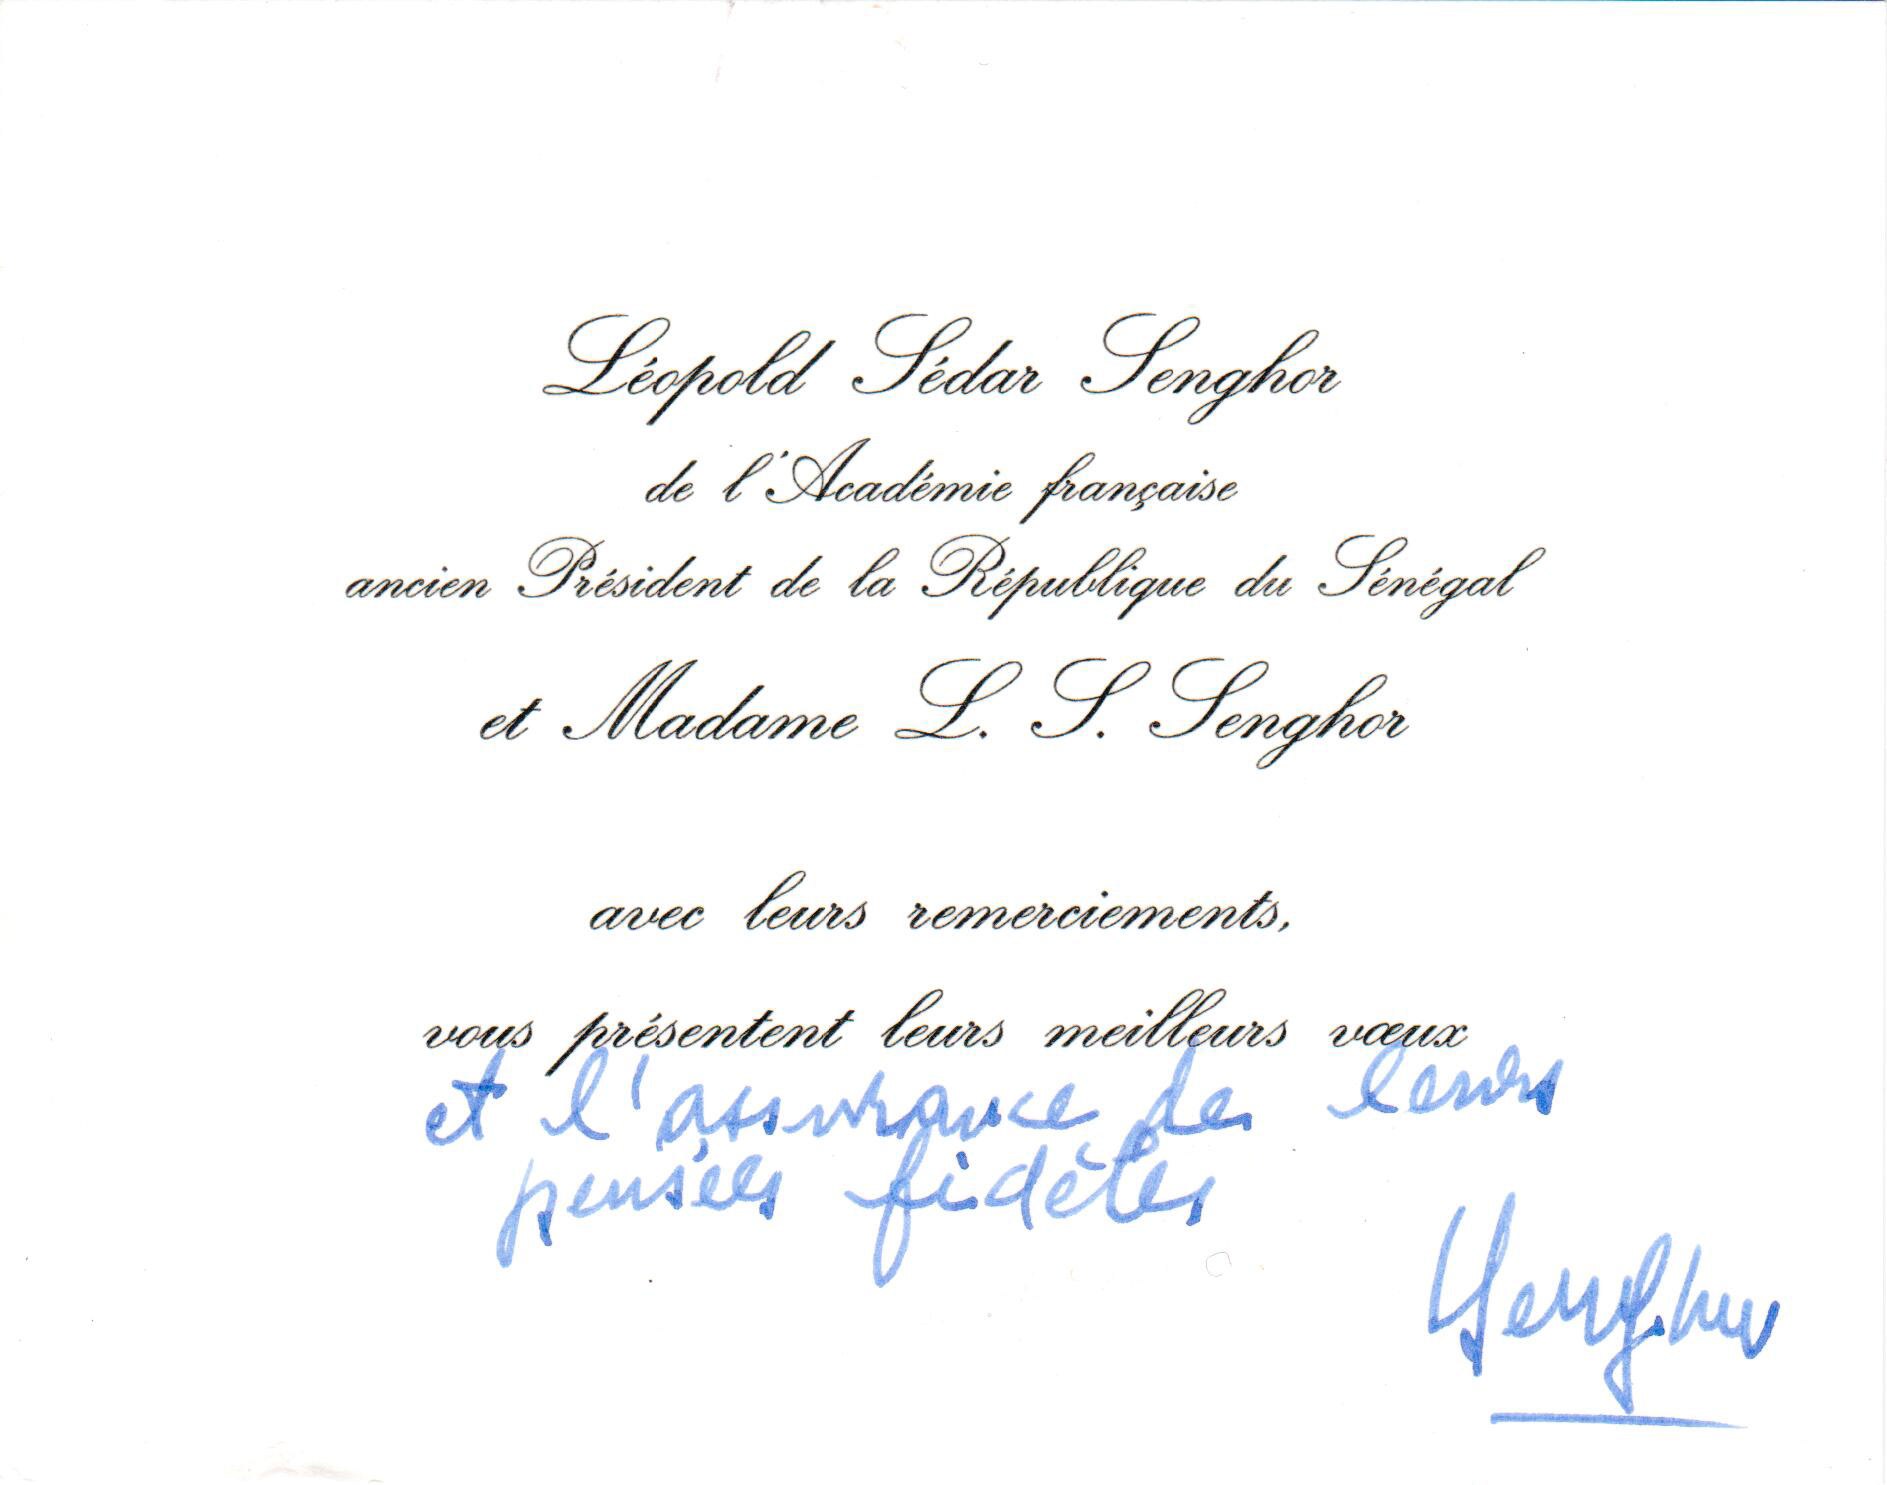 Léopold Sédar Senghor
de l'Académie française
ancien Président de la République du Sénégal
et Madame L. S. Senghor
avec leurs remerciements,
vous présentent leurs meilleurs vœux
et l'assurance de leurs
pensées fidèles
Senghor